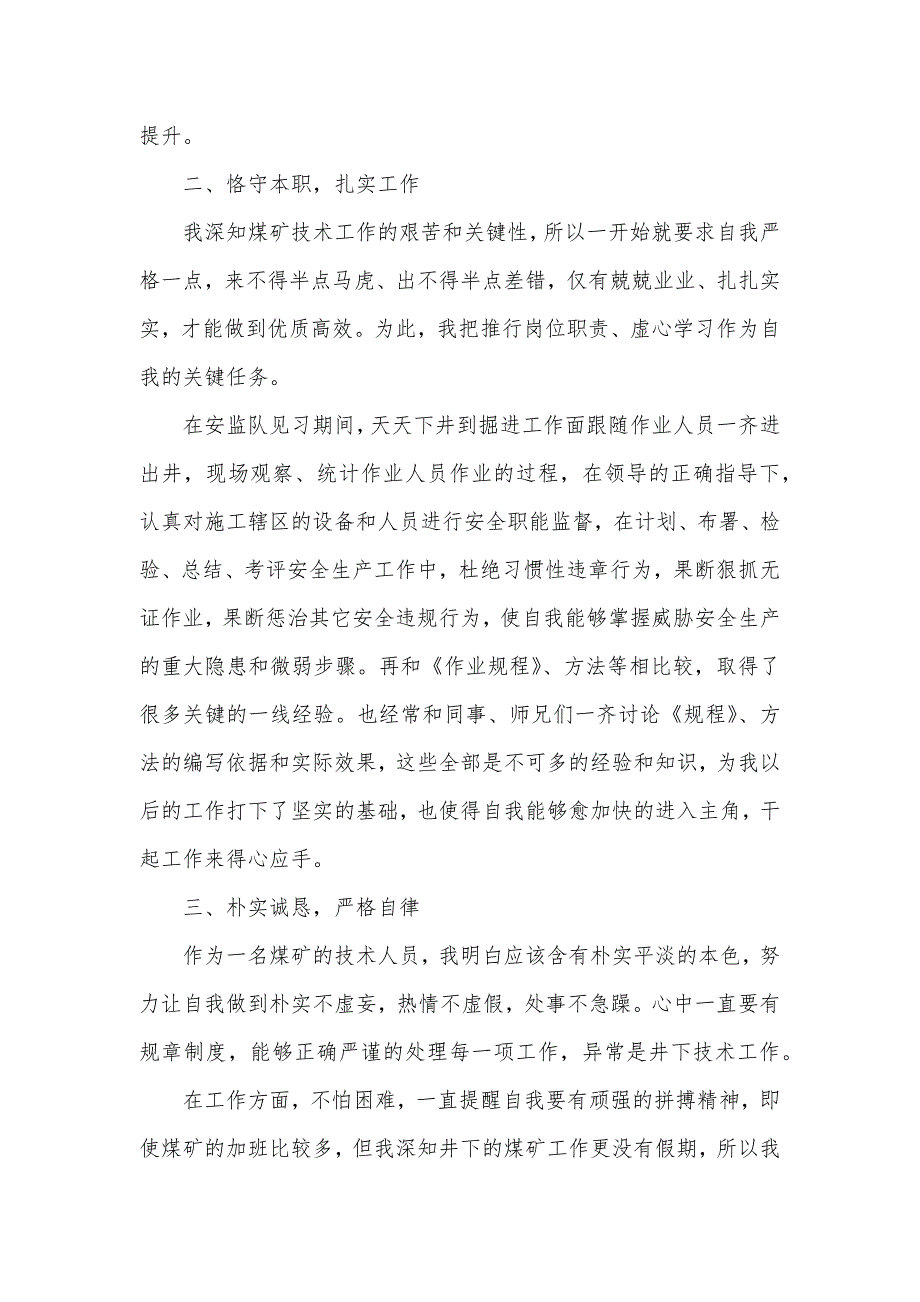 提升。
二、恪守本职，扎实工作
我深知煤矿技术工作的艰苦和关键性，所以一开始就要求自我严
格一点，来不得半点马虎、出不得半点差错，仅有兢兢业业、扎扎实
实，才能做到优质高效。为此，我把推行岗位职责、虚心学习作为自
我的关键任务。
在安监队见习期间，天天下井到掘进工作面跟随作业人员一齐进
出井，现场观察、统计作业人员作业的过程，在领导的正确指导下，
认真对施工辖区的设备和人员进行安全职能监督，在计划、布署、检
验、总结、考评安全生产工作中，杜绝习惯性违章行为，果断狠抓无
证作业，果断惩治其它安全违规行为，使自我能够掌握威胁安全生产
的重大隐患和微弱步骤。再和《作业规程》、方法等相比较，取得了
很多关键的一线经验。也经常和同事、师兄们一齐讨论《规程》、方
法的编写依据和实际效果，这些全部是不可多的经验和知识，为我以
后的工作打下了坚实的基础，也使得自我能够愈加快的进入主角，干
起工作来得心应手。
三、朴实诚恳，严格自律
作为一名煤矿的技术人员，我明白应该含有朴实平淡的本色，努
力让自我做到朴实不虚妄，热情不虚假，处事不急躁。心中一直要有
规章制度，能够正确严谨的处理每一项工作，异常是井下技术工作。
在工作方面，不怕困难，一直提醒自我要有顽强的拼搏精神，即
使煤矿的加班比较多，但我深知井下的煤矿工作更没有假期，所以我